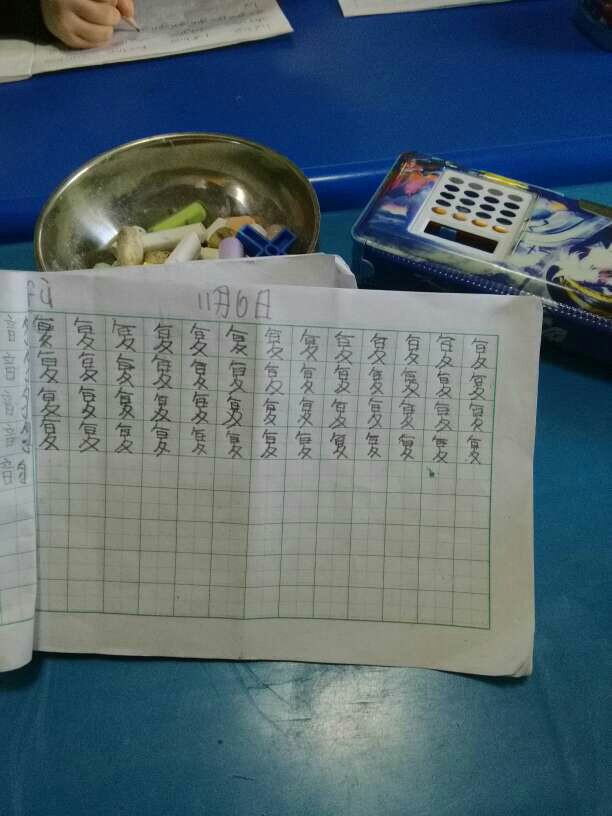 11月6日
音 复 复 复 复 复 复 复 复 复 复 复 复 复
音 复 复 复 复 复 复 复 复 复 复 复 复 复
音 复 复 复 复 复 复 复 复 复 复 复 复 复
音 复 复 复 复 复 复 复 复 复 复 复 复 复
韵